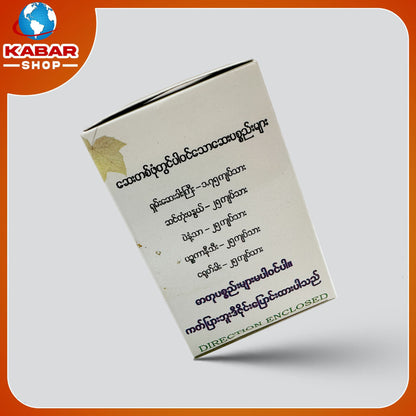 KABAR
SHOP
ဆေးတစ်ပုံတွင်ပါဝင်သောဆေးပစ္စည်းများ
ရှမ်းဆေးခါးကြီး – ၁.၇၅ကျပ်သား
ဆင်တုံးမနွယ် – .၂၅ကျပ်သား
ပဲနံ့သာ – .၂၅ကျပ်သား
ပဉ္စကာနီသီး – .၂၅ကျပ်သား
ငရုတ်ခါး – .၂၅ကျပ်သား
ဓာတုပစ္စည်းများမပါဝင်ပါ။
ကတ်ပြားဘူးဒီဇိုင်းပြောင်းထားပါသည်
DIRECTION ENCLOSED